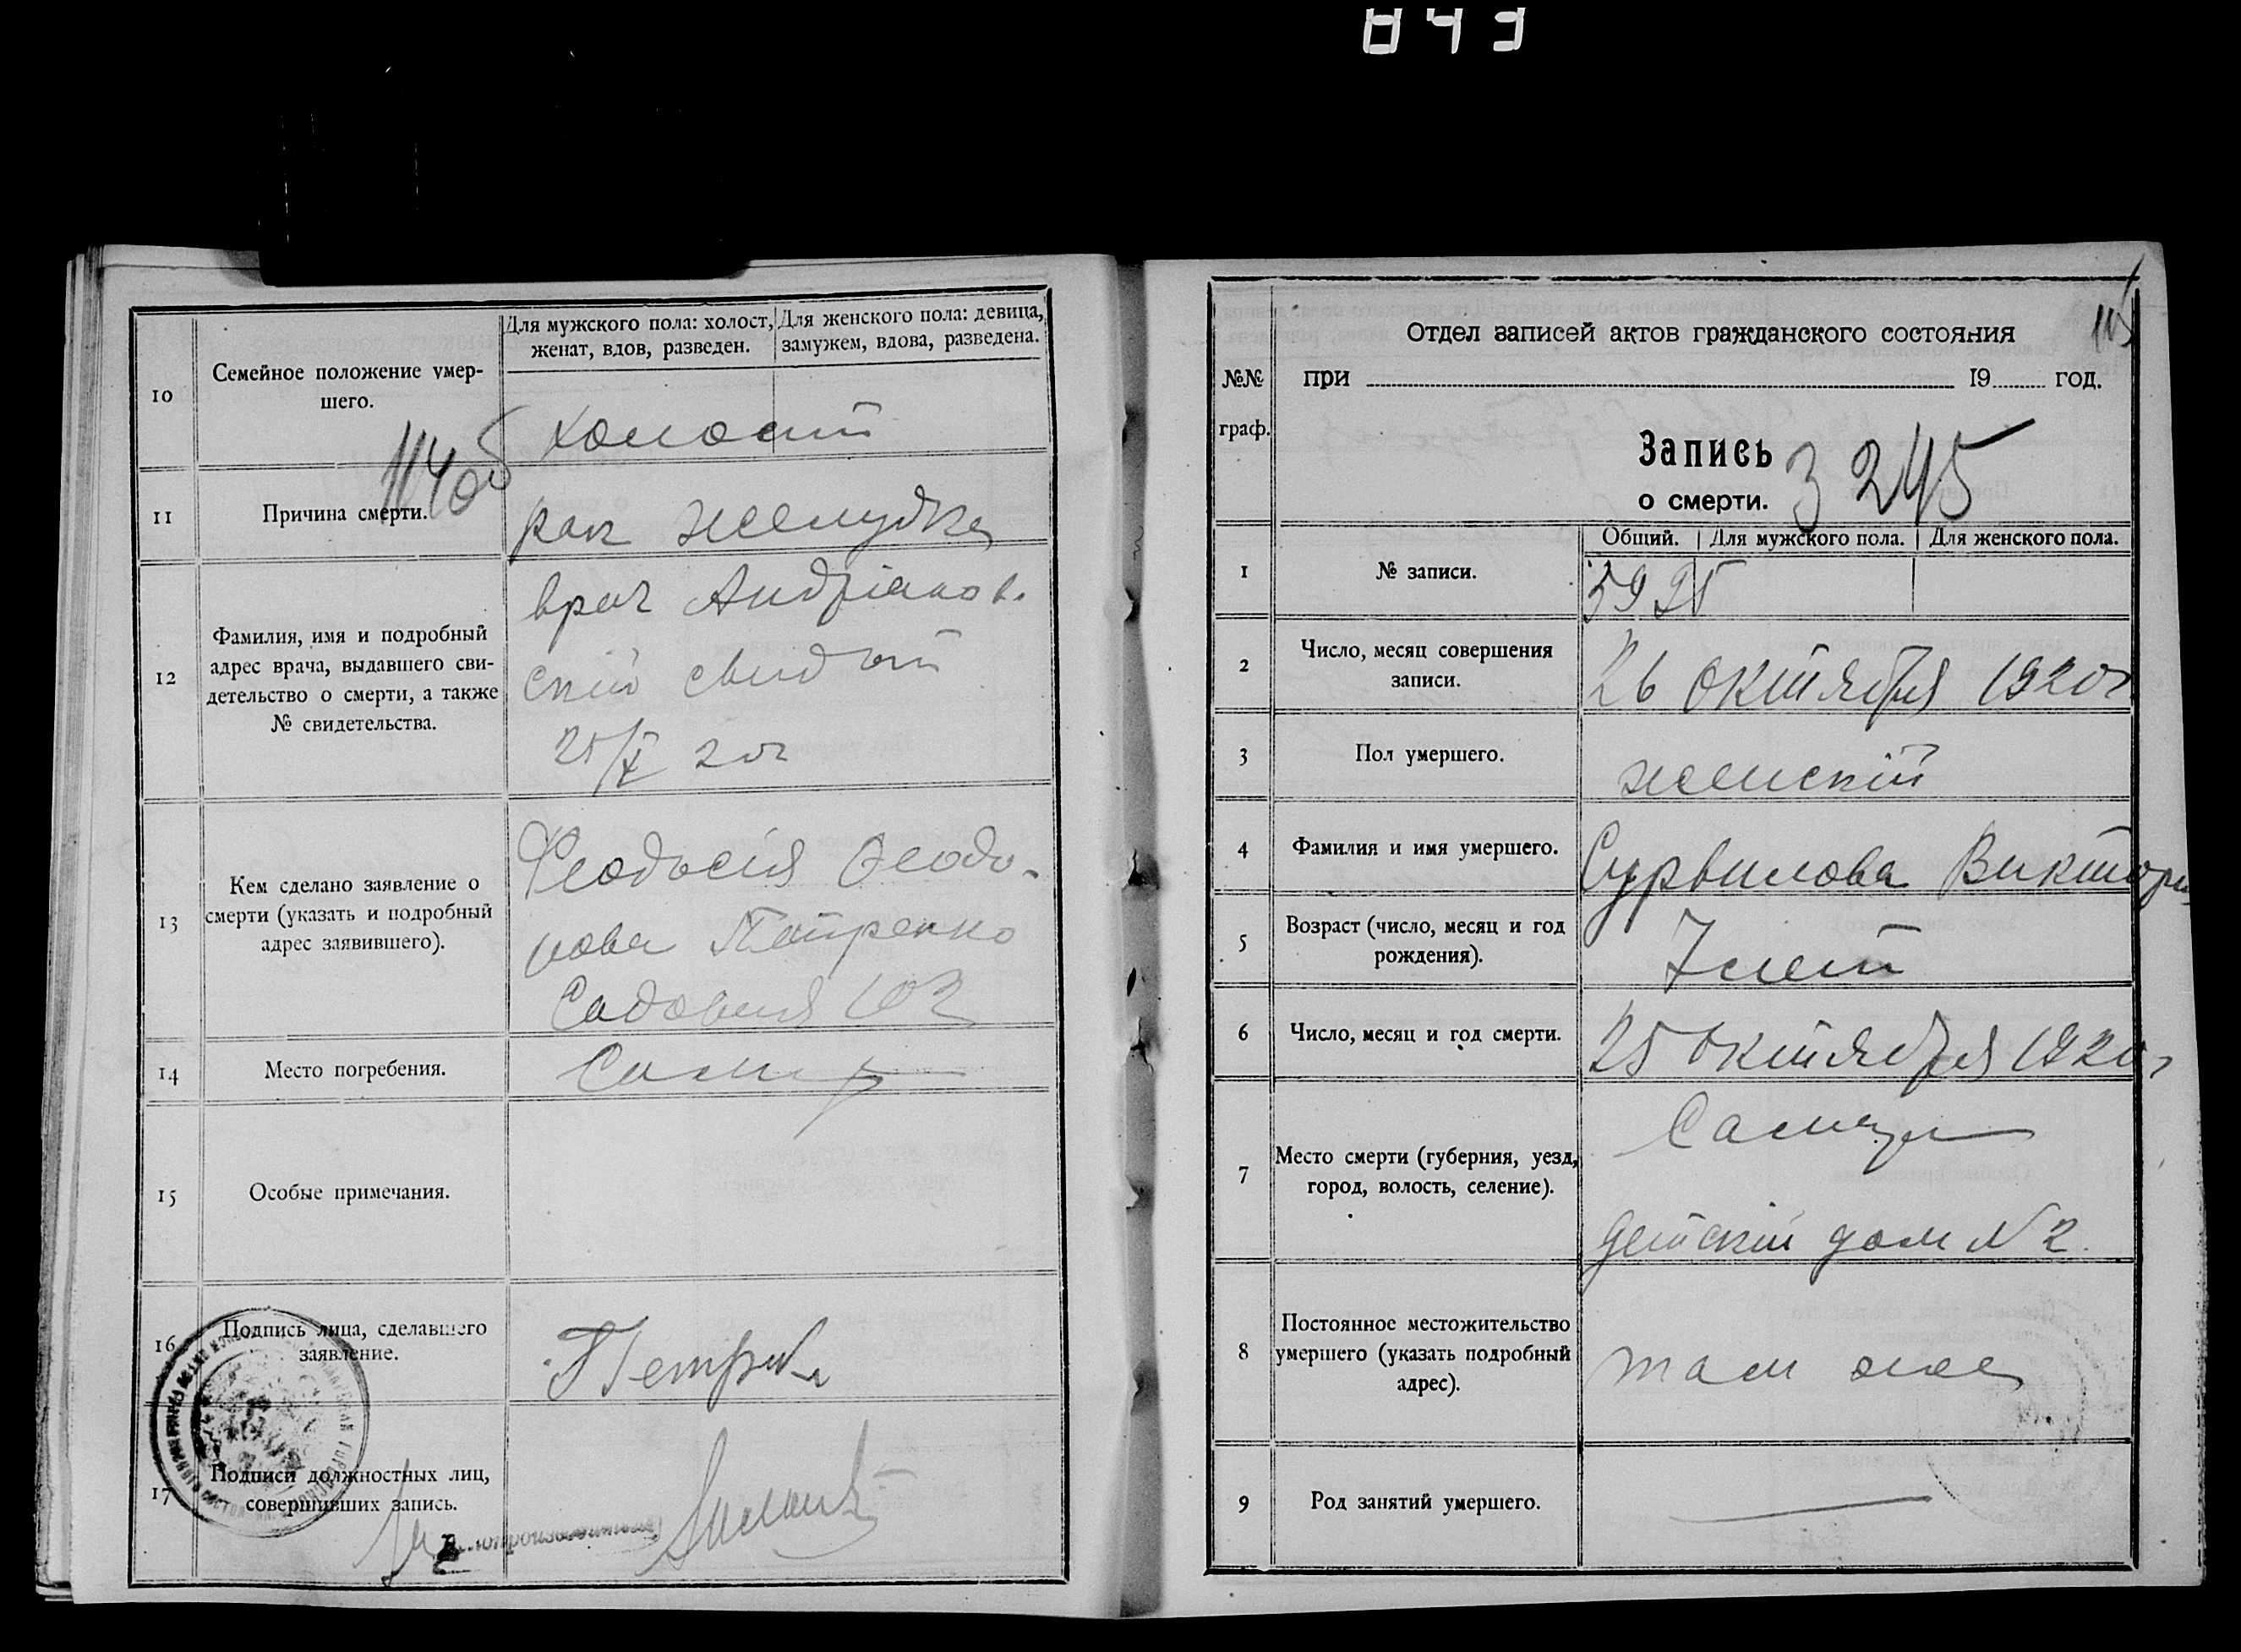 843
10
Семейное положение умер-
шего.
Для мужского пола: холост,
женат, вдов, разведен.
Для женского пола: девица,
замужем, вдова, разведена.
холост
114об
11
Причина смерти.
рак желудка
12
Фамилия, имя и подробный
адрес врача, выдавшего сви-
детельство о смерти, а также
№ свидетельства.
врач Андріанов.
скій свид от
25/X 20г
13
Кем сделано заявление о
смерти (указать и подробный
адрес заявившего).
Феодосія Феодо-
рова Петренко
Садовая 102
14
Место погребения.
15
Особые примечания.
16
Подпись лица, сделавшего
заявление.
17
Подписи должностных лиц,
совершивших запись.
115
Отдел записей актов гражданского состояния
№№
граф.
при 19 год.
Запись
о смерти.
3245
Общий. Для мужского пола. Для женского пола.
1
№ записи.
5995
2
Число, месяц совершения
записи.
26 октября 1920г
3
Пол умершего.
женскій
4
Фамилия и имя умершего.
Сурвилова Виктори
5
Возраст (число, месяц и год
рождения).
7 лет
6
Число, месяц и год смерти.
25 октября 1920г
7
Место смерти (губерния, уезд,
город, волость, селение).
Самара
детскій дом N 2.
8
Постоянное местожительство
умершего (указать подробный
адрес).
там же
9
Род занятий умершего.